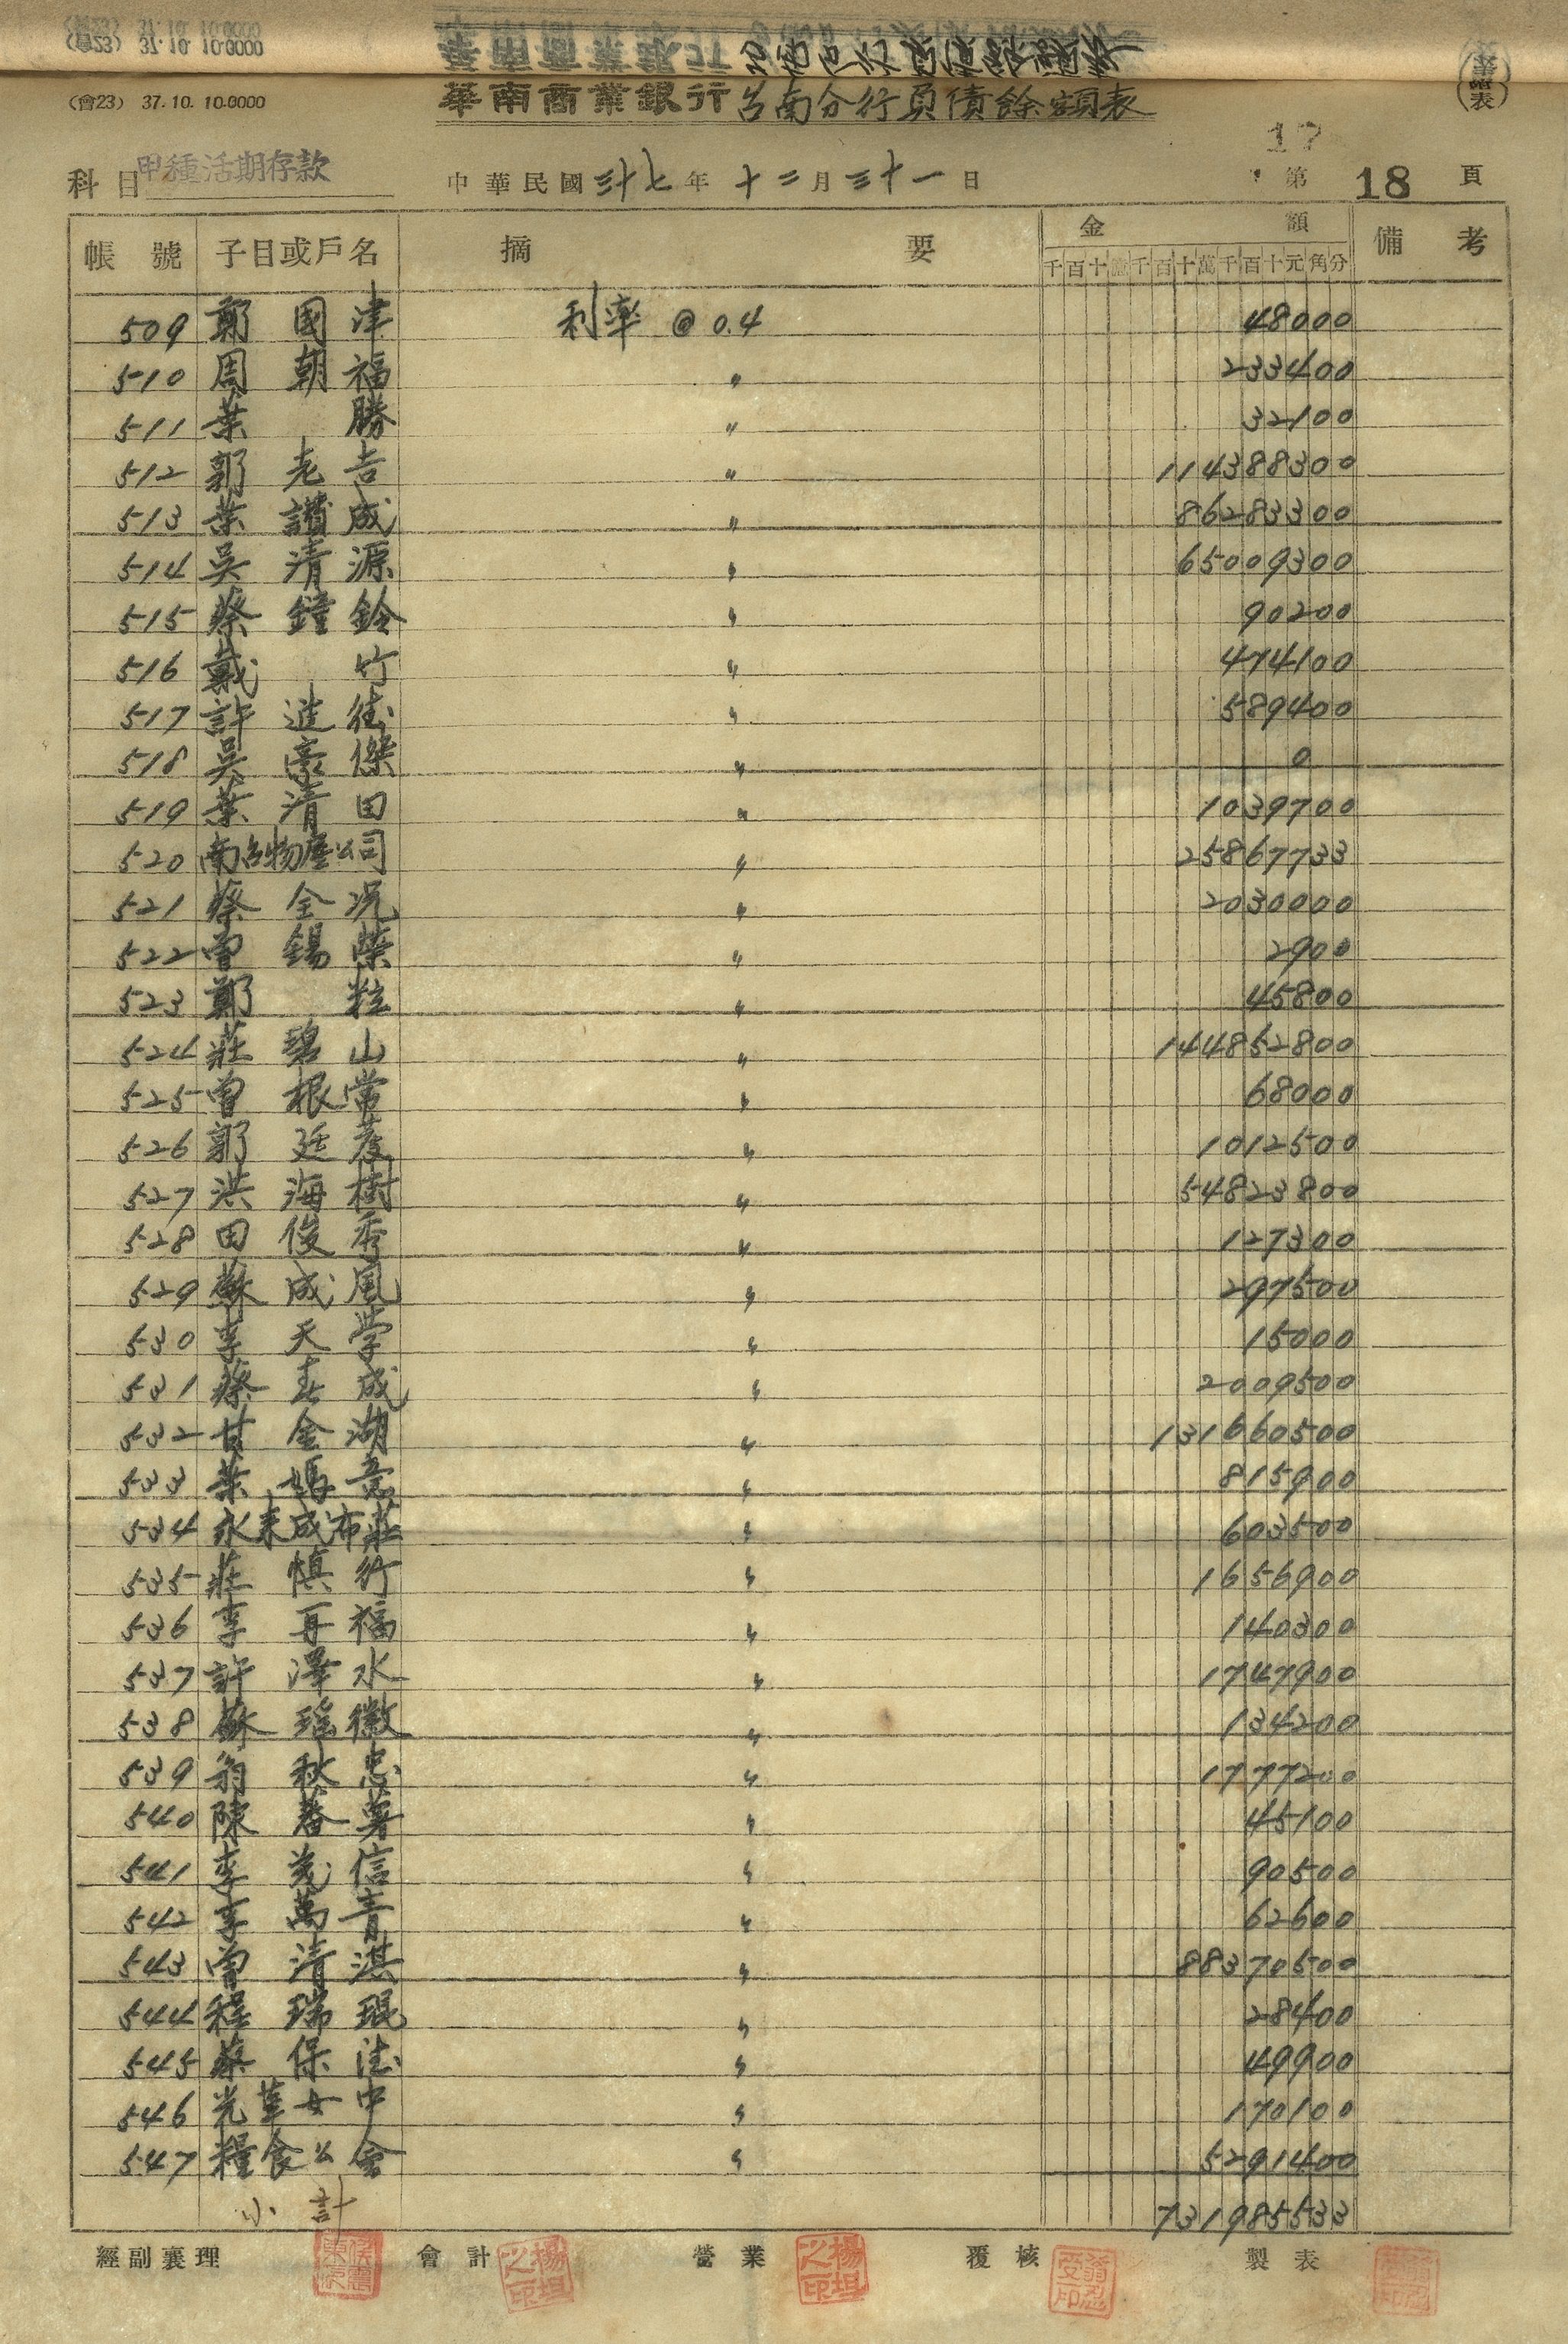 (會23) 37.10. 10.0000
(會23) 37.10. 10.0000
華南商業銀行台南分行負債餘額表
(決算諸表)
17
科目 甲種活期存款 中華民國三十七年十二月三十一日 第18頁
帳號 子目或戶名 摘要 金額 備考
千百十億千百十萬千百十元角分
509 鄭國津 利率 @ 0.4 48000
510 周朝福 〃 233400
511 葉勝 〃 32100
512 郭老吉 〃 114388300
513 葉讃成 〃 86283300
514 吳清源 〃 65009300
515 蔡鐘鈴 〃 90200
516 戴竹 〃 474100
517 許進德 〃 589400
518 吳豪傑 〃 0
519 葉清田 〃 1039700
520 南台物產公司 〃 25867733
521 蔡全況 〃 2030000
522 曾錫榮 〃 2900
523 鄭粒 〃 45800
524 莊碧山 〃 144852800
525 曾根常 〃 68000
526 郭廷彥 〃 1012500
527 洪海樹 〃 54823800
528 田俊秀 〃 127300
529 蘇成風 〃 297500
530 李天学 〃 15000
531 蔡春成 〃 2009500
532 甘金湖 〃 131660500
533 葉媽意 〃 815900
534 永東成布莊 〃 603500
535 莊慎行 〃 1656900
536 李再福 〃 140300
537 許澤水 〃 1747900
538 蘇瑤徽 〃 134200
539 翁秋忠 〃 1777200
540 陳蕃薯 〃 45100
541 李茂信 〃 90500
542 李萬青 〃 62600
543 曾清淇 〃 88370500
544 程瑞琨 〃 28400
545 蔡保法 〃 49900
546 光華女中 〃 170100
547 糧食公會 〃 5291400
小計 731985533
經副襄理 會計 楊坦之印 營業 楊坦之印 覆核 製表